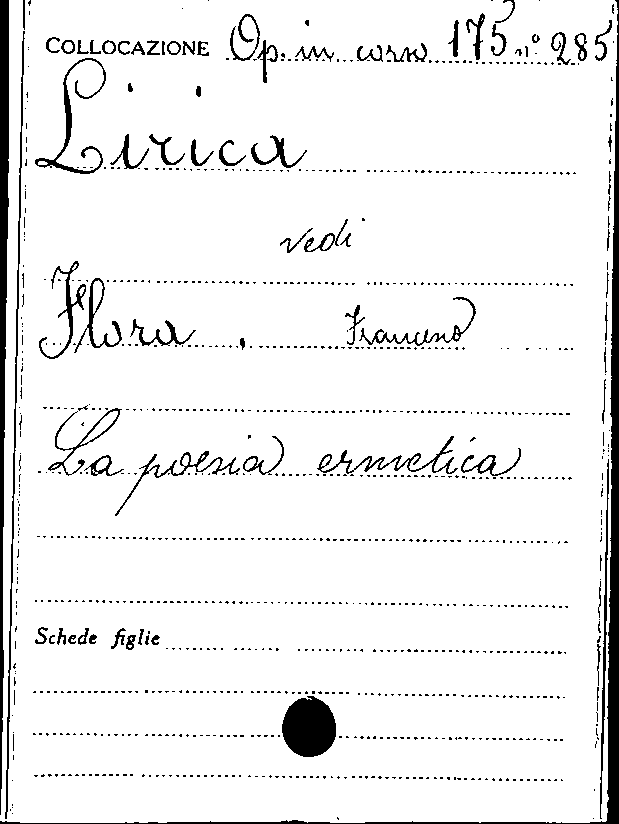 COLLOCAZIONE Op. in corso 175 n° 285
Lirica
vedi
Flora . Francesco
La poesia ermetica
Schede figlie